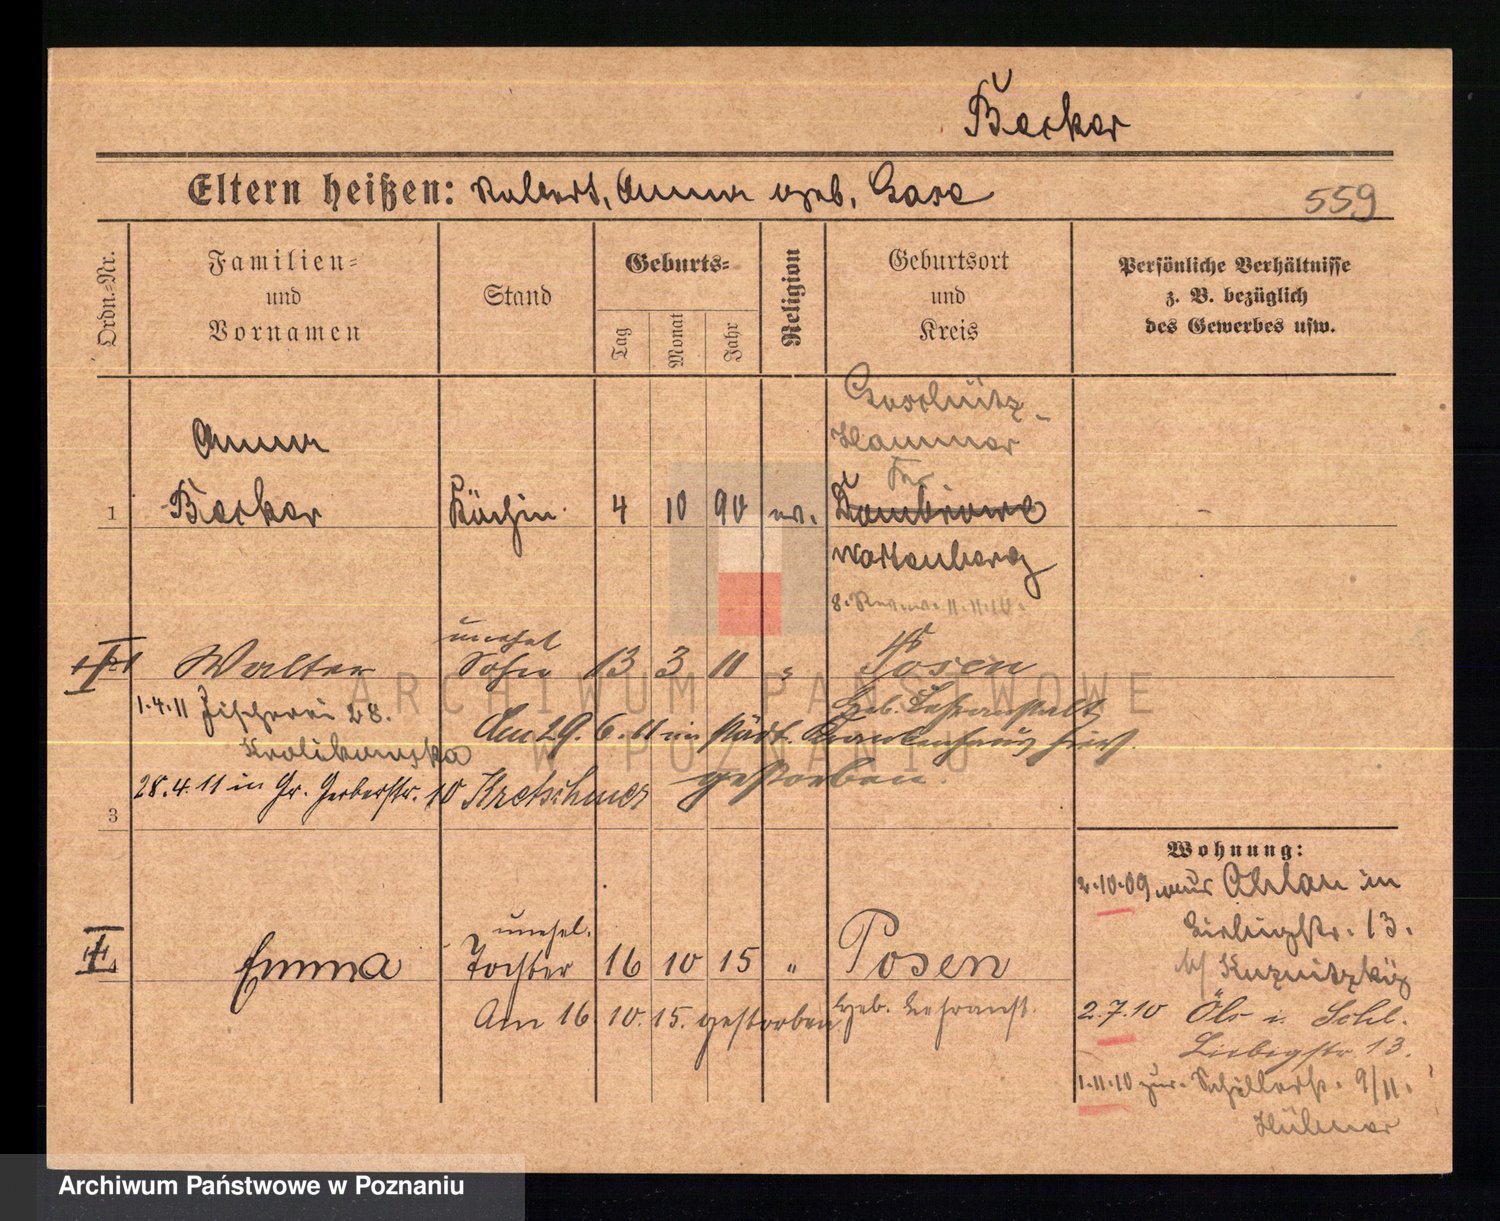 Becker
Eltern heißen: Robert, Anna geb.
559
Ordn.=Nr.
Familien=
und
Vornamen
Stand
Geburts=
Tag
Monat
Jahr
Religion
Geburtsort
und
Kreis
Persönliche Verhältnisse
z. B. bezüglich
des Gewerbes usw.
Hammer
Anna
1 Becker Köchin 4 10 90 ev. Dombrowe
Wartenberg
unehel
Walter Sohn 13 3 11 " Posen
1.4.11 Fischerei 28.
Geb. Lehranstalt
Am 29. 6. 11 im städt. Krankenhaus hier
Krolikowska
gestorben.
28.4.11 in Gr. Gerberstr. 10 Kretschmer
3
Wohnung:
2.10.09 aus Ohlau in
Liebigstr. 13.
b/ Kuznitzky
unehel.
Emma Tochter 16 10 15 " Posen
Am 16 10. 15. gestorben. Geb. Lehranst.
2.7.10 Öls i. Schl.
Liebigstr. 13.
1.11.10 zur. Schillerstr. 9/II.
Hübner
ARCHIWUM PAŃSTWOWE
W POZNANIU
Archiwum Państwowe w Poznaniu